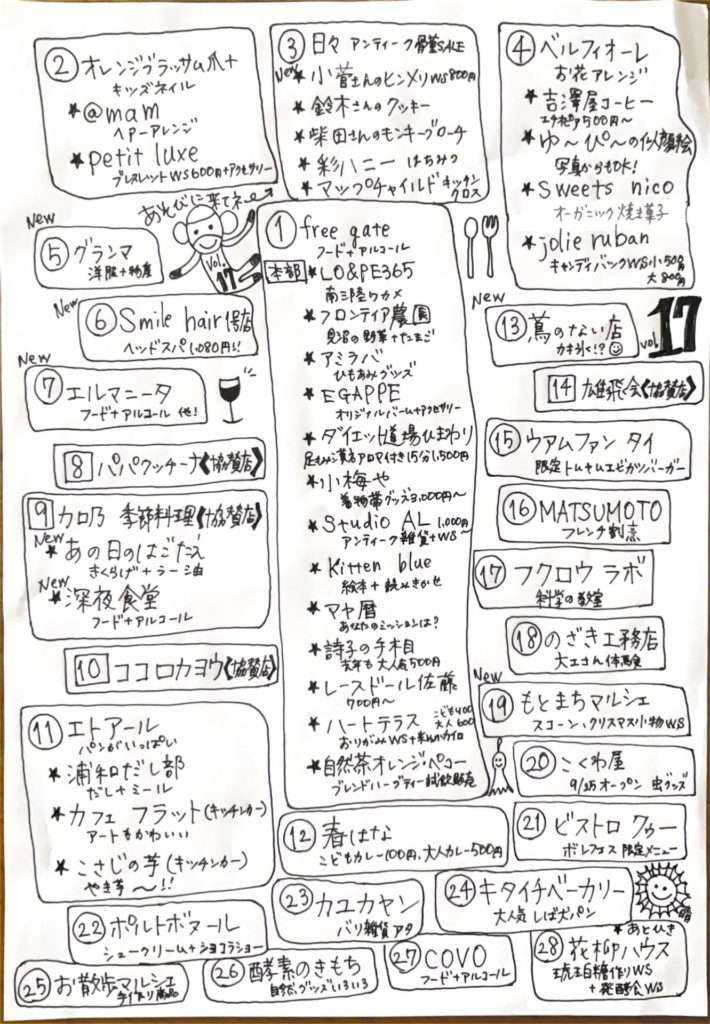 ② オレンジブラッサム爪+
キッズネイル
★@mam
ヘアーアレンジ
★petit luxe
ブレスレットWS600円+アクセサリー
③ 日々 アンティーク骨董SALE
New★小菅さんのヒンメリWS800円
★鈴木さんのクッキー
★柴田さんのモンキーブローチ
★彩ハニー はちみつ
★マップチャイルド キッチン
クロス
④ ベルフィオーレ
お花アレンジ
★吉澤屋コーヒー
エチオピア500円〜
★ゆ〜ぴ〜の似顔絵
写真からもOK!
★Sweets nico
オーガニック焼き菓子
★jolie ruban
キャンディバックWS小500円
大800円
あそびに来てネ→
Vol.
17
New
⑤ グランマ
洋服+物産
New
⑥ Smile hair 傳店
ヘッドスパ1,080円!!
New
⑦ エルマニータ
フード+アルコール 他!
8 パパクッチーナ《協賛店》
9 カロ乃 季節料理《協賛店》
New
★あの日のはごだえ
きくらげ+ラー油
New
★深夜食堂
フード+アルコール
10 ココロカヨウ《協賛店》
⑪ エトアール
パンがいっぱい
★浦和だし部
だし+ミール
★カフェ フラット(キッチンカー)
アートもかわいい
★こさじの芋(キッチンカー)
やき芋〜!!
① free gate
フード+アルコール
本部 ★LO&PE365
南三陸ワカメ
★フロンティア農園
見沼の野菜+たまご
★アミラバ
ひもあみグッズ
★EGAPPE
オリジナルバーム+アクセサリー
★ダイエット道場ひまわり
足もみ漢方アロマ付き15分1,500円
★小梅や
着物帯グッズ3,000円〜
★Studio AL 1,000円
アンティーク雑貨+WS〜
★Kitten blue
絵本+読みきかせ
★マヤ暦
あなたのミッションは?
★詩子の手相
去年も大人気500円
★レースドール佐藤
700円〜
★ハートテラス こども400
大人600
おりがみWS+まんがカイロ
★自然茶オレンジ・ペコー
ブレンドハーブティー試飲販売
New
⑬ 蔦のない店
カキ氷!?
vol.17
14 雄飛会《協賛店》
⑮ ウアムファン タイ
限定トムヤムエビカツバーガー
⑯ MATSUMOTO
フレンチ割烹
⑰ フクロウ ラボ
科学の教室
⑱ のざき工務店
大工さん体験
New
⑲ もとまちマルシェ
スコーン、クリスマス小物WS
⑳ こくわ屋
9/25オープン 虫グッズ
⑫ 春はな
こどもカレー100円、大人カレー500円
㉑ ビストロ クゥー
ボレフェス 限定メニュー
㉒ ポルトボヌール
シュークリーム+ショコラショー
㉓ カユカヤン
バリ雑貨 アタ
㉔ キタイチベーカリー
大人気 しば犬パン
晴
㉕ お散歩マルシェ
手作り商品
㉖ 酵素のきもち
自然グッズいろいろ
㉗ COVO
フード+アルコール
★あとひき
㉘ 花材GPハウス
琥珀糖作りWS
+発酵食WS